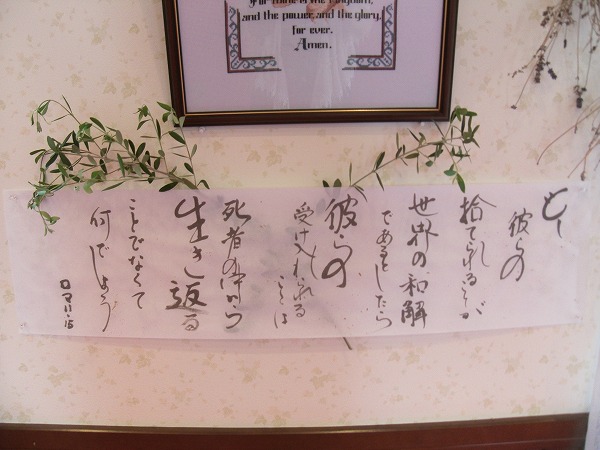 For thine is the kingdom,
and the power, and the glory,
for ever.
Amen.
もし
彼らの
捨てられることが
世界の和解
であるとしたら
彼らの
受け入れられる
ことは
死者の中から
生き返る
ことでなくて
何でしょう
ロマ11:15